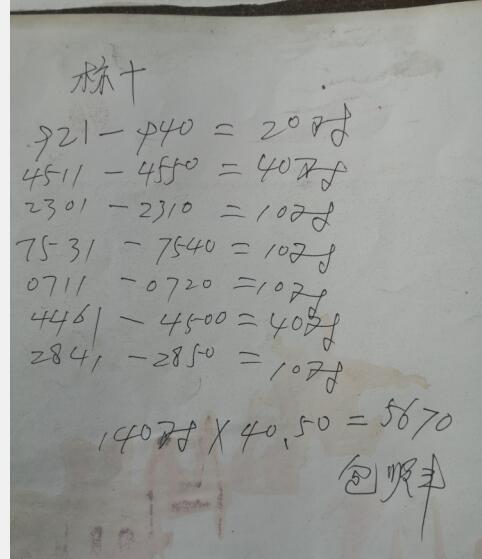 标十
921-940=20对
4511-4550=40对
2301-2310=10对
7531-7540=10对
0711-0720=10对
4461-4500=40对
2841-2850=10对
140对×40.50=5670
包顺丰